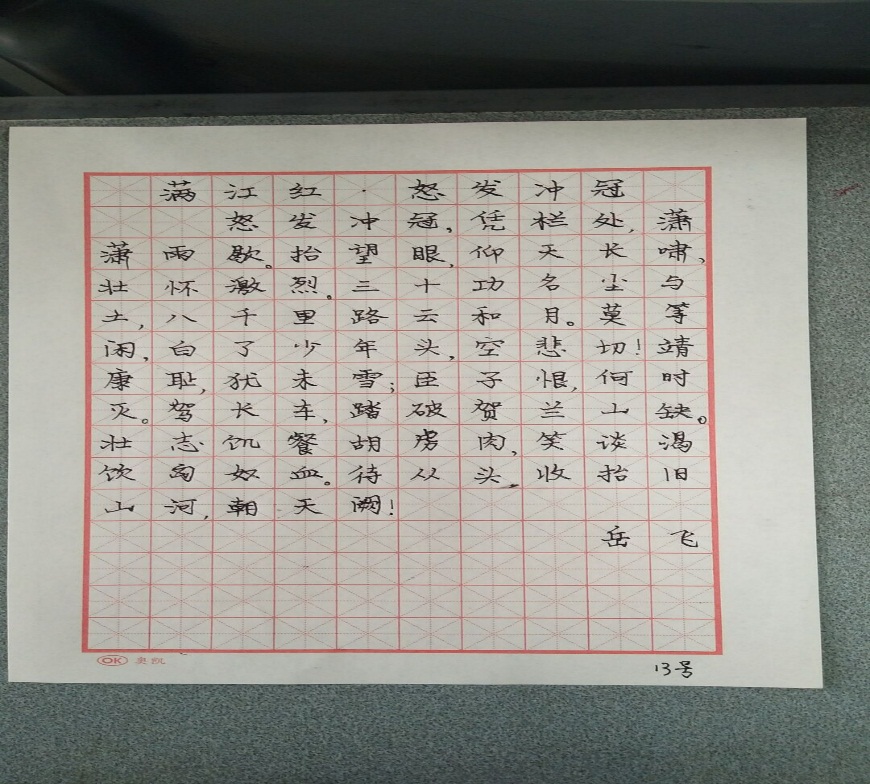 满江红·怒发冲冠
怒发冲冠,凭栏处,潇
潇雨歇。抬望眼,仰天长啸,
壮怀激烈。三十功名尘与
土,八千里路云和月。莫等
闲,白了少年头,空悲切!靖
康耻,犹未雪;臣子恨,何时
灭。驾长车,踏破贺兰山缺。
壮志饥餐胡虏肉,笑谈渴
饮匈奴血。待从头。收抬旧
山河,朝天阙!
岳飞
OK 奥凯
13号